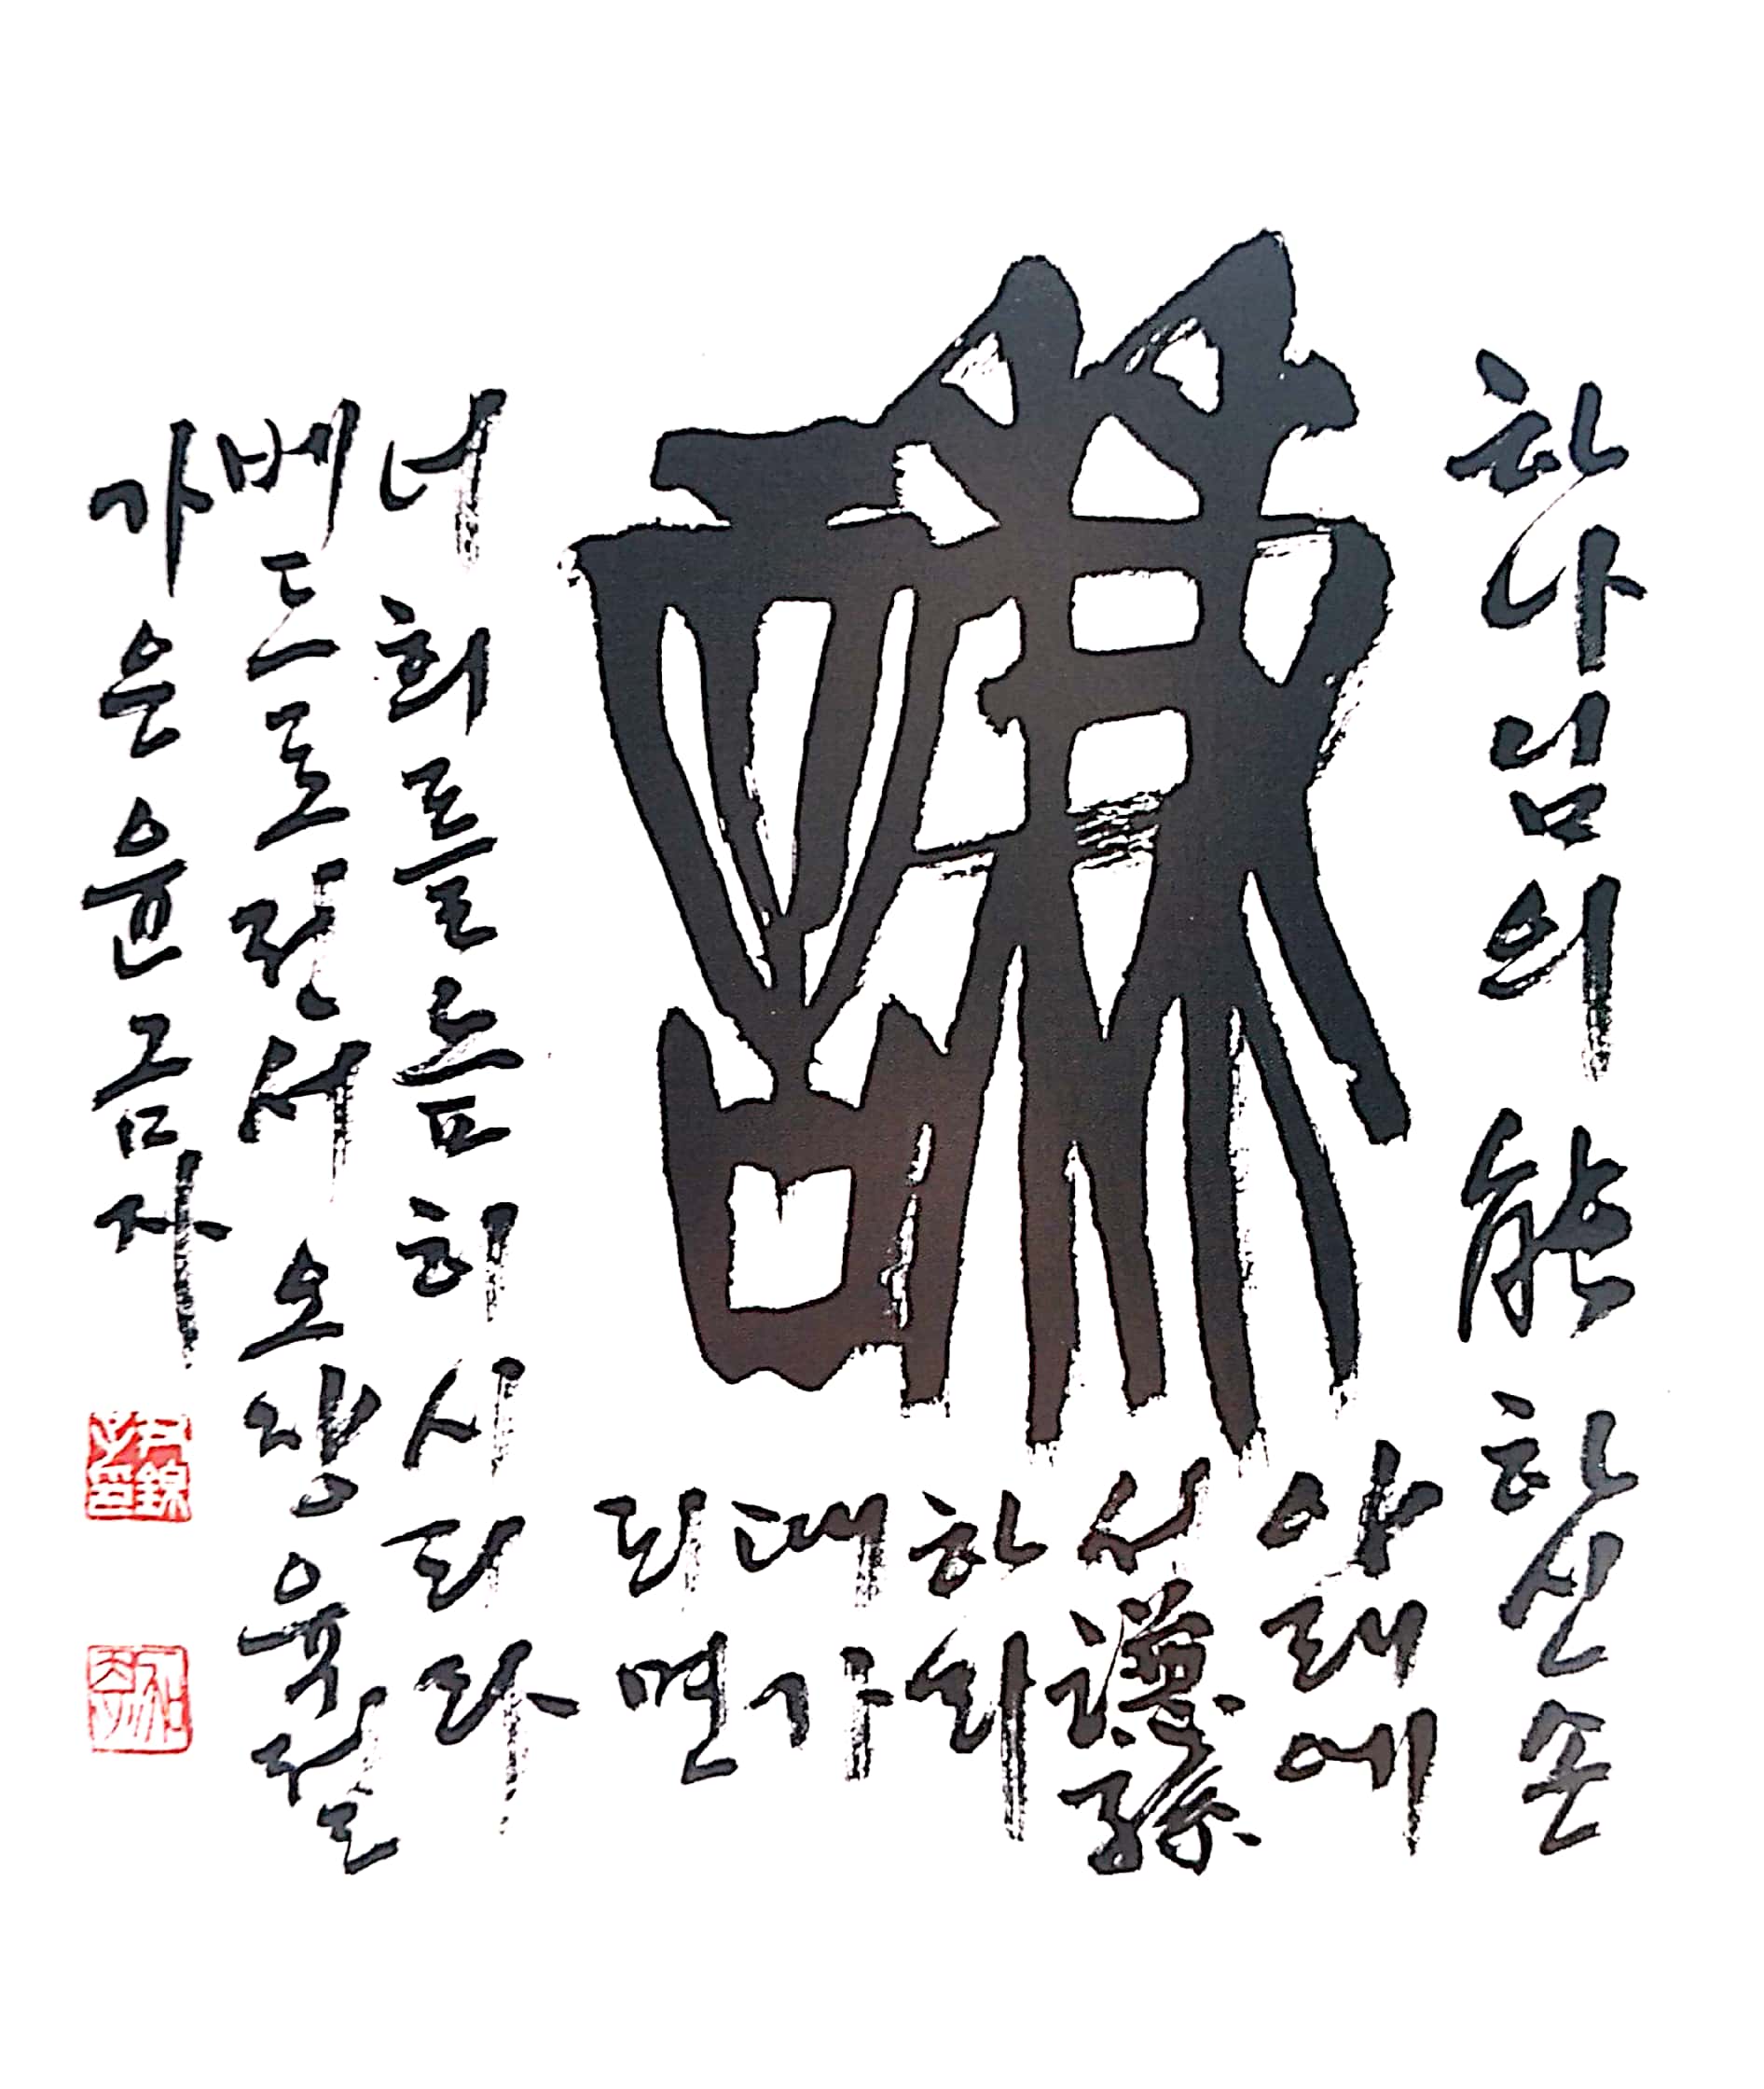 謙
하나님의 能하신 손
아래에
서 謙孫
하라
때가
되면
너희를 높히시리라
베드로전서 오장 육절
가은 윤금자